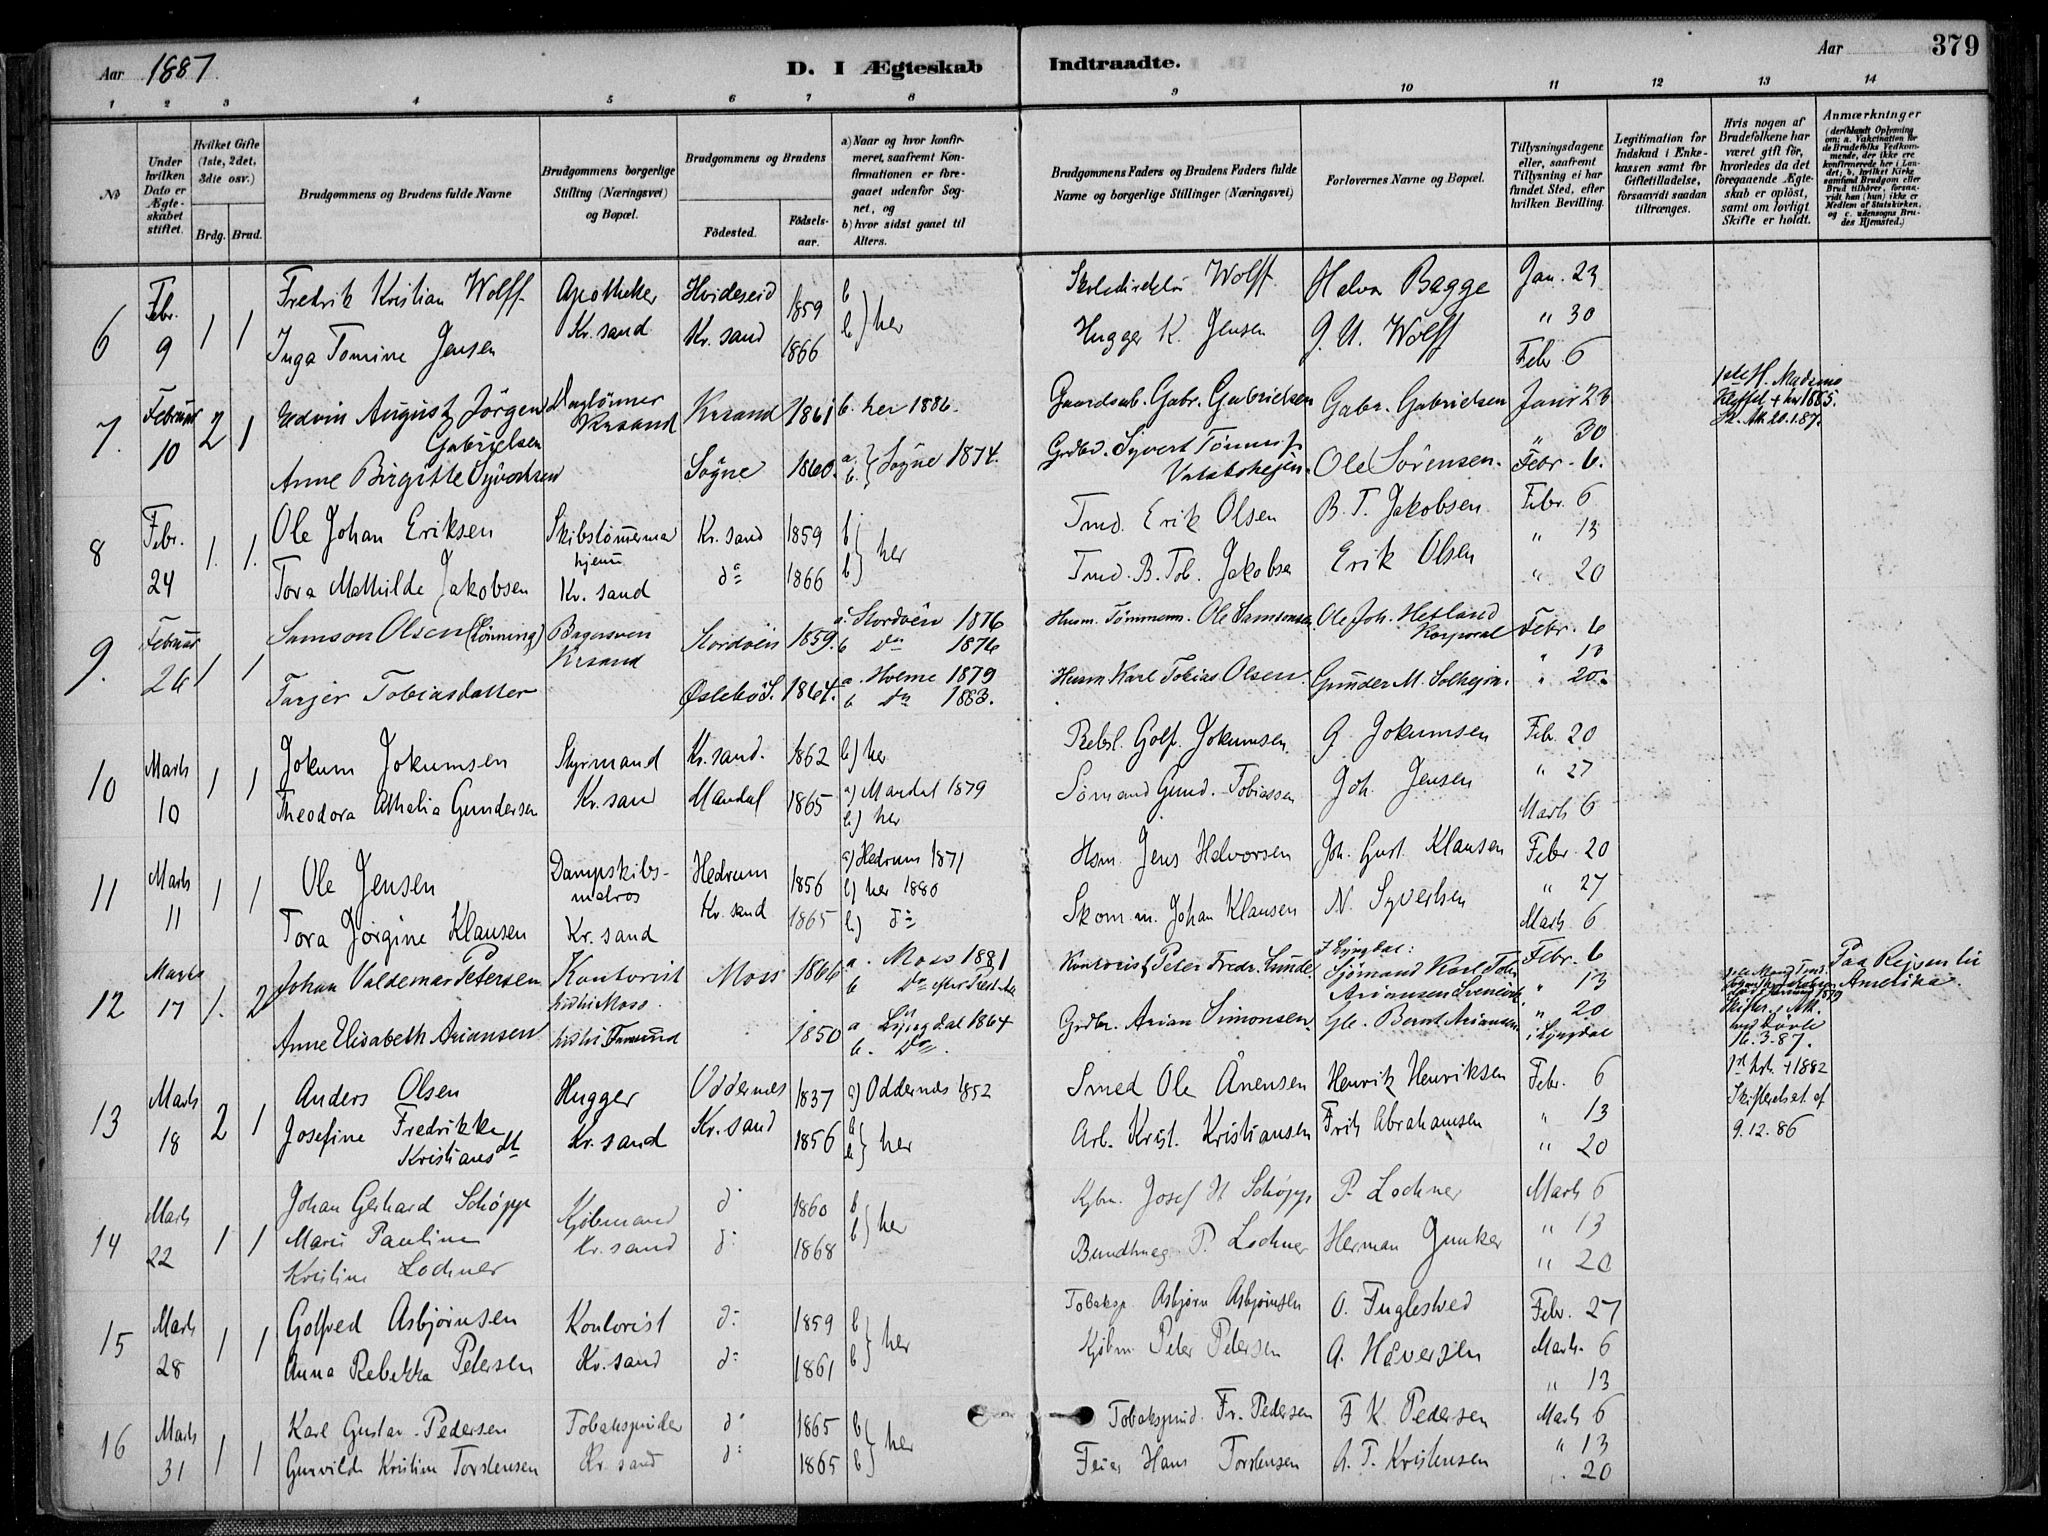 Aar 1887.
D. I Ægteskab
Indtraadte.
Aar
379
1 2 3 4 5 6 7 8 9 10 11 12 13 14
No
Under hvilken Dato er Ægteskabet stiftet.
Hvilket Gifte (1ste, 2det, 3die osv.)
Brdg. Brud.
Brudgommens og Brudens fulde Navne
Brudgommens borgerlige Stilling (Næringsvei) og Bopæl.
Brudgommens og Brudens
Födested.
Födselsaar.
a) Naar og hvor konfirmeret, saafremt Konfirmationen er foregaaet udenfor Sognet, og
b) hvor sidst gaaet til Alters.
Brudgommens Faders og Brudens Faders fulde Navne og borgerlige Stillinger (Næringsvei)
Forlovernes Navne og Bopæl.
Tillysningsdagene eller, saafremt Tillysning ei har fundet Sted, efter hvilken Bevilling.
Legitimation for Indskud i Enkekassen samt for Giftetilladelse, forsaavidt saadan tiltrænges.
Hvis nogen af Brudefolkene har været gift för, hvorledes da det foregaaende Ægteskab er oplöst, samt om lovligt Skifte er holdt.
Anmærkninger
(deriblandt Oplysning om: a. Vakcination for de Brudefolks Vedkommende, der ikke ere konfirmerede her i Landet; b. hvilket Kirkesamfund Brudgom eller Brud tilhörer, forsaavidt han (hun) ikke er Medlem af Statskirken, og c. udensogns Brudes Hjemsted.)
6 Febr. 9 1 1 Fredrik Kristian Wolff Apotheker Hvideseid 1859 b Wolff Halvor Bagge Jan. 23
Inga Tomine Jensen Kr. sand Kr. sand 1866 b } her Hugger K. Jensen J. U. Wolff " 30
Febr 6
7. Februar 10 2 1 Edvin August Jörgen Gabrielsen Daglönner Krsand Krsand 1861 b. her 1886. Gaardsb. Gabr. Gabrielsen Gabr. Gabrielsen Janr 23
Anne Birgitte Syvertsen Sögne 1860. a. b. } Sögne 1874. Grdbr. Syvert Tönnes. Ole Sörensen. " 30 Febr. 6.
20.1.87.
8 Febr. 24 1. 1. Ole Johan Eriksen Skibstömmermand Kr. sand 1859 b Tmd. Erik Olsen B. T. Jakobsen Febr. 6
" 13
Tora Mathilde Jakobsen hjem Kr. sand do 1866 b) her Tmd. B. Tob. Jakobsen Erik Olsen " 20
9. Februar 26 1 1 Samson Olsen (Lönning) Bagersven Krsand Stordöen 1859. a. Stordöen 1876 b Do 1876 Husm. Tömmerm. Ole Samsonsen Ole Joh. Hetland Korporal Febr. 6
" 13
Tarjer Tobiasdatter Öslebö S. 1864. a. Holme 1879 b Do 1883. Husm Karl Tobias Olsen. Gunder M. Solhejm. " 20.
10 Marts 10 1 1 Jokum Jokumsen Styrmand Kr. sand. 1862 b) her Rebsl. Golf. Jokumsen. G. Jokumsen Feb. 20
Theodora Athalia Gundersen Kr. sand Mandal 1865 a) Mandal 1879 b) her Sömand Gund. Tobiassen Joh. Jensen " 27
Marts 6
11 Marts 11 1 1 Ole Jensen Dampskibsmatros Hedrum 1856 a) Hedrum 1871 b) her 1880 Hsm. Jens Halvorsen Joh. Gust. Klausen Febr. 20
" 27
Tora Jörgine Klausen Kr. sand Kr. sand 1865 b) do Skom. m. Johan Klausen N. Syvertsen Marts 6
12 Marts 17 1. 2 Johan Valdemar Petersen Kontorist Moss 1866 a. Moss 1881 b Do Kontorist Peter Fredr. Lunde I Lyngdal: Sjömand Karl Febr. 6
" 13
Anne Elisabeth Ariansen 1850 a Lyngdal 1864 b. Do Grdbr. Arian Simonsen. Bernt Ariansen i Lyngdal " 20
16.3.87.
Paa Rejsen til Amerika.
13 Marts 18 2 1 Anders Olsen Hugger Oddernes 1837 a) Oddernes 1852 Smed Ole Ånensen Henrik Henriksen Febr. 6
Josefine Fredrikke Kristiansdt Kr. sand Kr. sand 1856 b } her Arb. Krist. Kristiansen Frits Abrahamsen " 13
" 20
+ 1882 Skifteret. at. af 9.12.86
14 Marts 22 1 1 Johan Gerhard Schöpp Kjöbmand do 1860 b Kjbm. Josef H Schöpp P. Lochner Marts 6
Marie Pauline Kristine Lochner Kr. sand do 1868 b } her P. Lochner Herman Junker " 13
" 20
15 Marts 28 1 1 Golfred Asbjörnsen Kontorist do 1859 b Tobaksp. Asbjörn Asbjörnsen O. Fuglestved Febr. 27
Anna Rebekka Petersen Kr. sand do 1861 b } her Kjöbm Peter Petersen A. Håversen Marts. 6
" 13
16 Marts 31 1 1 Karl Gustav Pedersen Tobakspinder do 1865 b Tobakspind. Fr. Pedersen F K. Pedersen Marts 6
Gunvilde Kristine Torstensen Kr. sand do 1865 b } her Feier Hans Torstensen A. T. Kristensen " 13
" 20